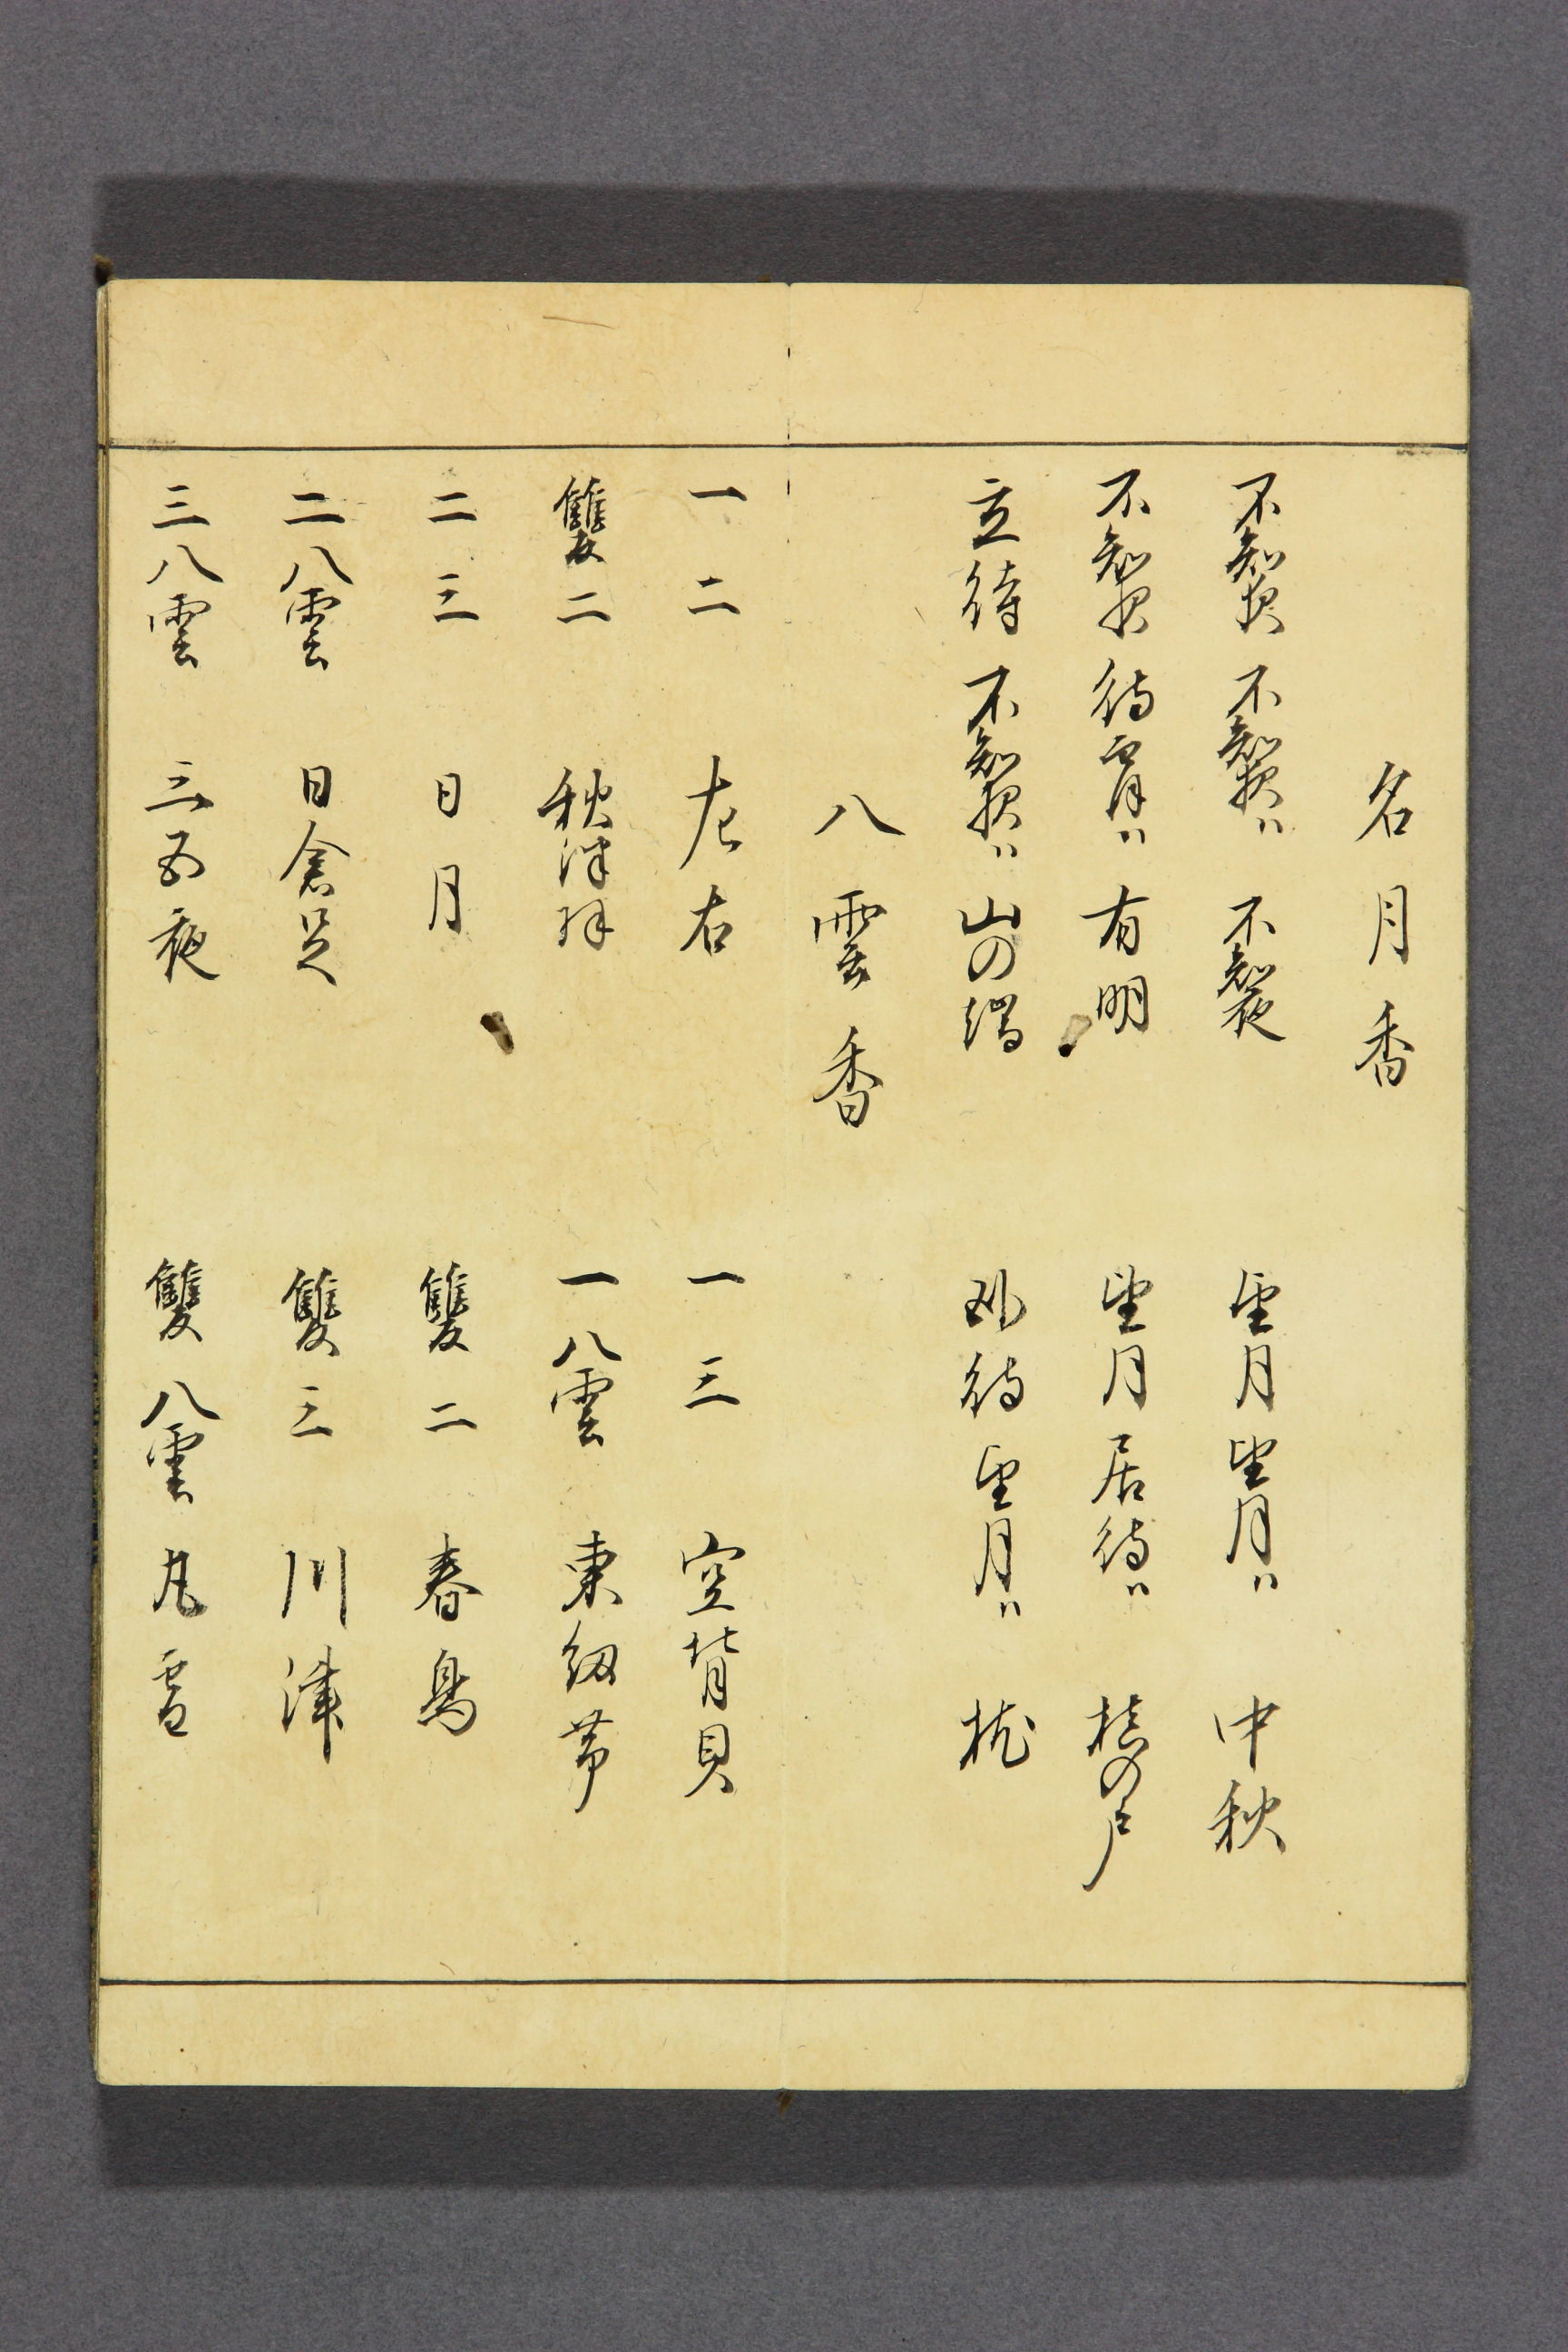 名月香
不知夜 不知夜〃 不知夜 望月 望月〃 中秋
不知夜 待宵〃 有明 望月 居待〃 槙の戸
立待 不知夜〃 山の端 臥待 望月〃
八雲香
一 二 左右 一 三 空背貝
雙 二 秋津 一 八雲 東
二 三 日月 雙 二 春鳥
二 八雲 日倉足 雙 三 川津
三 八雲 三五夜 雙 八雲 丸雪